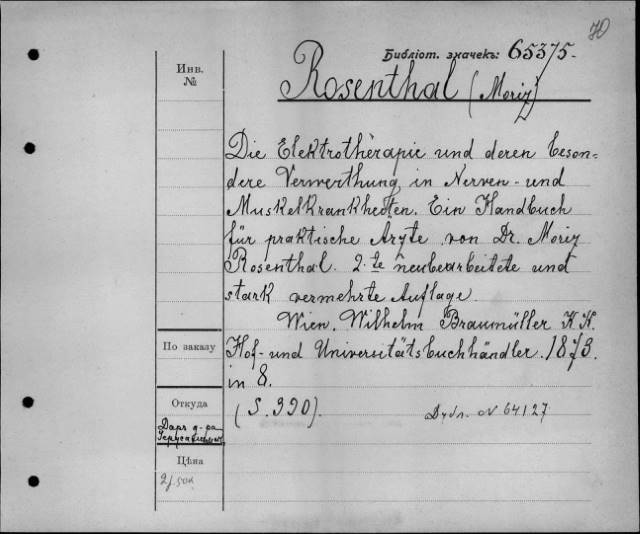 70
Библіот. значекъ: 65375.
Инв.
№
Rosenthal (Moriz)
Die Elektrothérapie und deren beson=
dere Verwerthung in Nerven- und
Muskelkrankheiten. Ein Handbuch
für praktische Ärzte von Dr. Moriz
Rosenthal. 2.te neubearbeitete und
stark vermehrte Auflage.
Wien. Wilhelm Braumüller K. K.
По заказу
Hof- und Universitätsbuchhändler. 1873.
in 8.
Откуда
(S. 390).
Дубл. № 64127
Даръ д-ра
Цѣна
2р. 50к